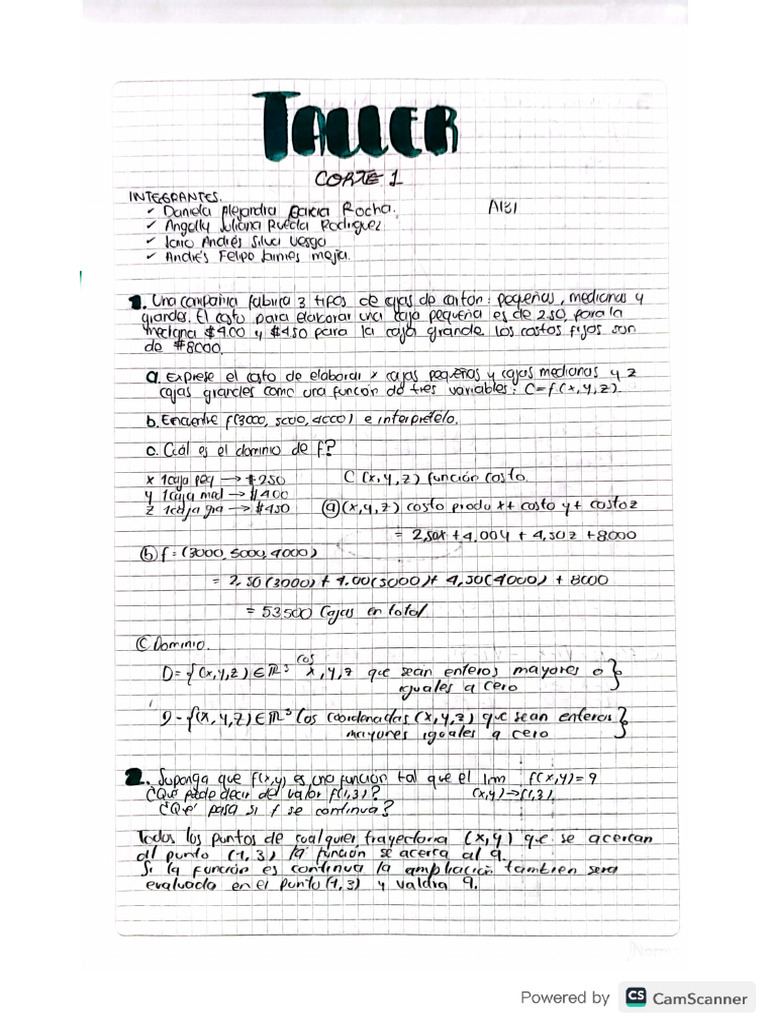 TALLER
CORTE 1
INTEGRANTES.
✓ Daniela Alejandra Garcia Rocha. A131
✓ Angelly Juliana Rueda Rodriguez
✓ Andrés Silva Vesga
✓ Andrés Felipe Jaimes mejia.
1. Una compañia fabrica 3 tipos de cajas de carton: pequeñas, medianas y
grandes. El costo para elaborar una caja pequeña es de 250, para la
mediana $400 y $450 para la caja grande. los costos fijos son
de $8000.
a. Exprese el costo de elaborar x cajas pequeñas y cajas medianas y z
cajas grandes como una función de tres variables: C=f(x,y,z).
b. Encuentre f(3000, 5000, 4000) e interpretelo.
c. Cúal es el dominio de f?
x 1caja peq → $250 C (x,y,z) función costo.
y 1caja med → $400
z 1caja gra → $450 (a) (x,y,z) costo produ x + costo y + costo z
= 2,50x + 4,00y + 4,50z + 8000
(b) f = (3000, 5000, 4000)
= 2,50(3000) + 4.00(5000) + 4,50(4000) + 8000
= 53500 Cajas en total
(C Dominio.
D = {(x,y,z) ∈ ℝ³ los x,y,z que sean enteros mayores o
iguales a cero}
D = {(x,y,z) ∈ ℝ³ Los coordenadas (x,y,z) que sean enteros
mayores iguales a cero}
2. Suponga que f(x,y) es una función tal que el lim f(x,y)=9
¿Qué puede decir del valor f(1,3)? (x,y)→(1,3).
¿Qué pasa si f se continua?
Todos los puntos de cualquier trayectoria (x,y) que se acercan
al punto (1,3) la función se acerca al 9.
Si la función es continua la ampliación tambien sera
evaluada en el punto (1,3) y valdria 9.
Powered by CS CamScanner